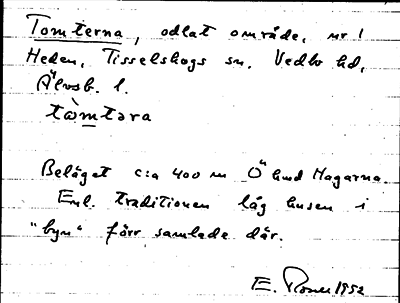 Tomterna, odlat område, nr 1
Heden, Tisselskogs sn, Vedbo hd,
Älvsb. l.
tòmtəra
Beläget c:a 400 m Ö Hagarna.
Enl. traditionen låg husen i
"byn" förr samlade där.
E. 1952